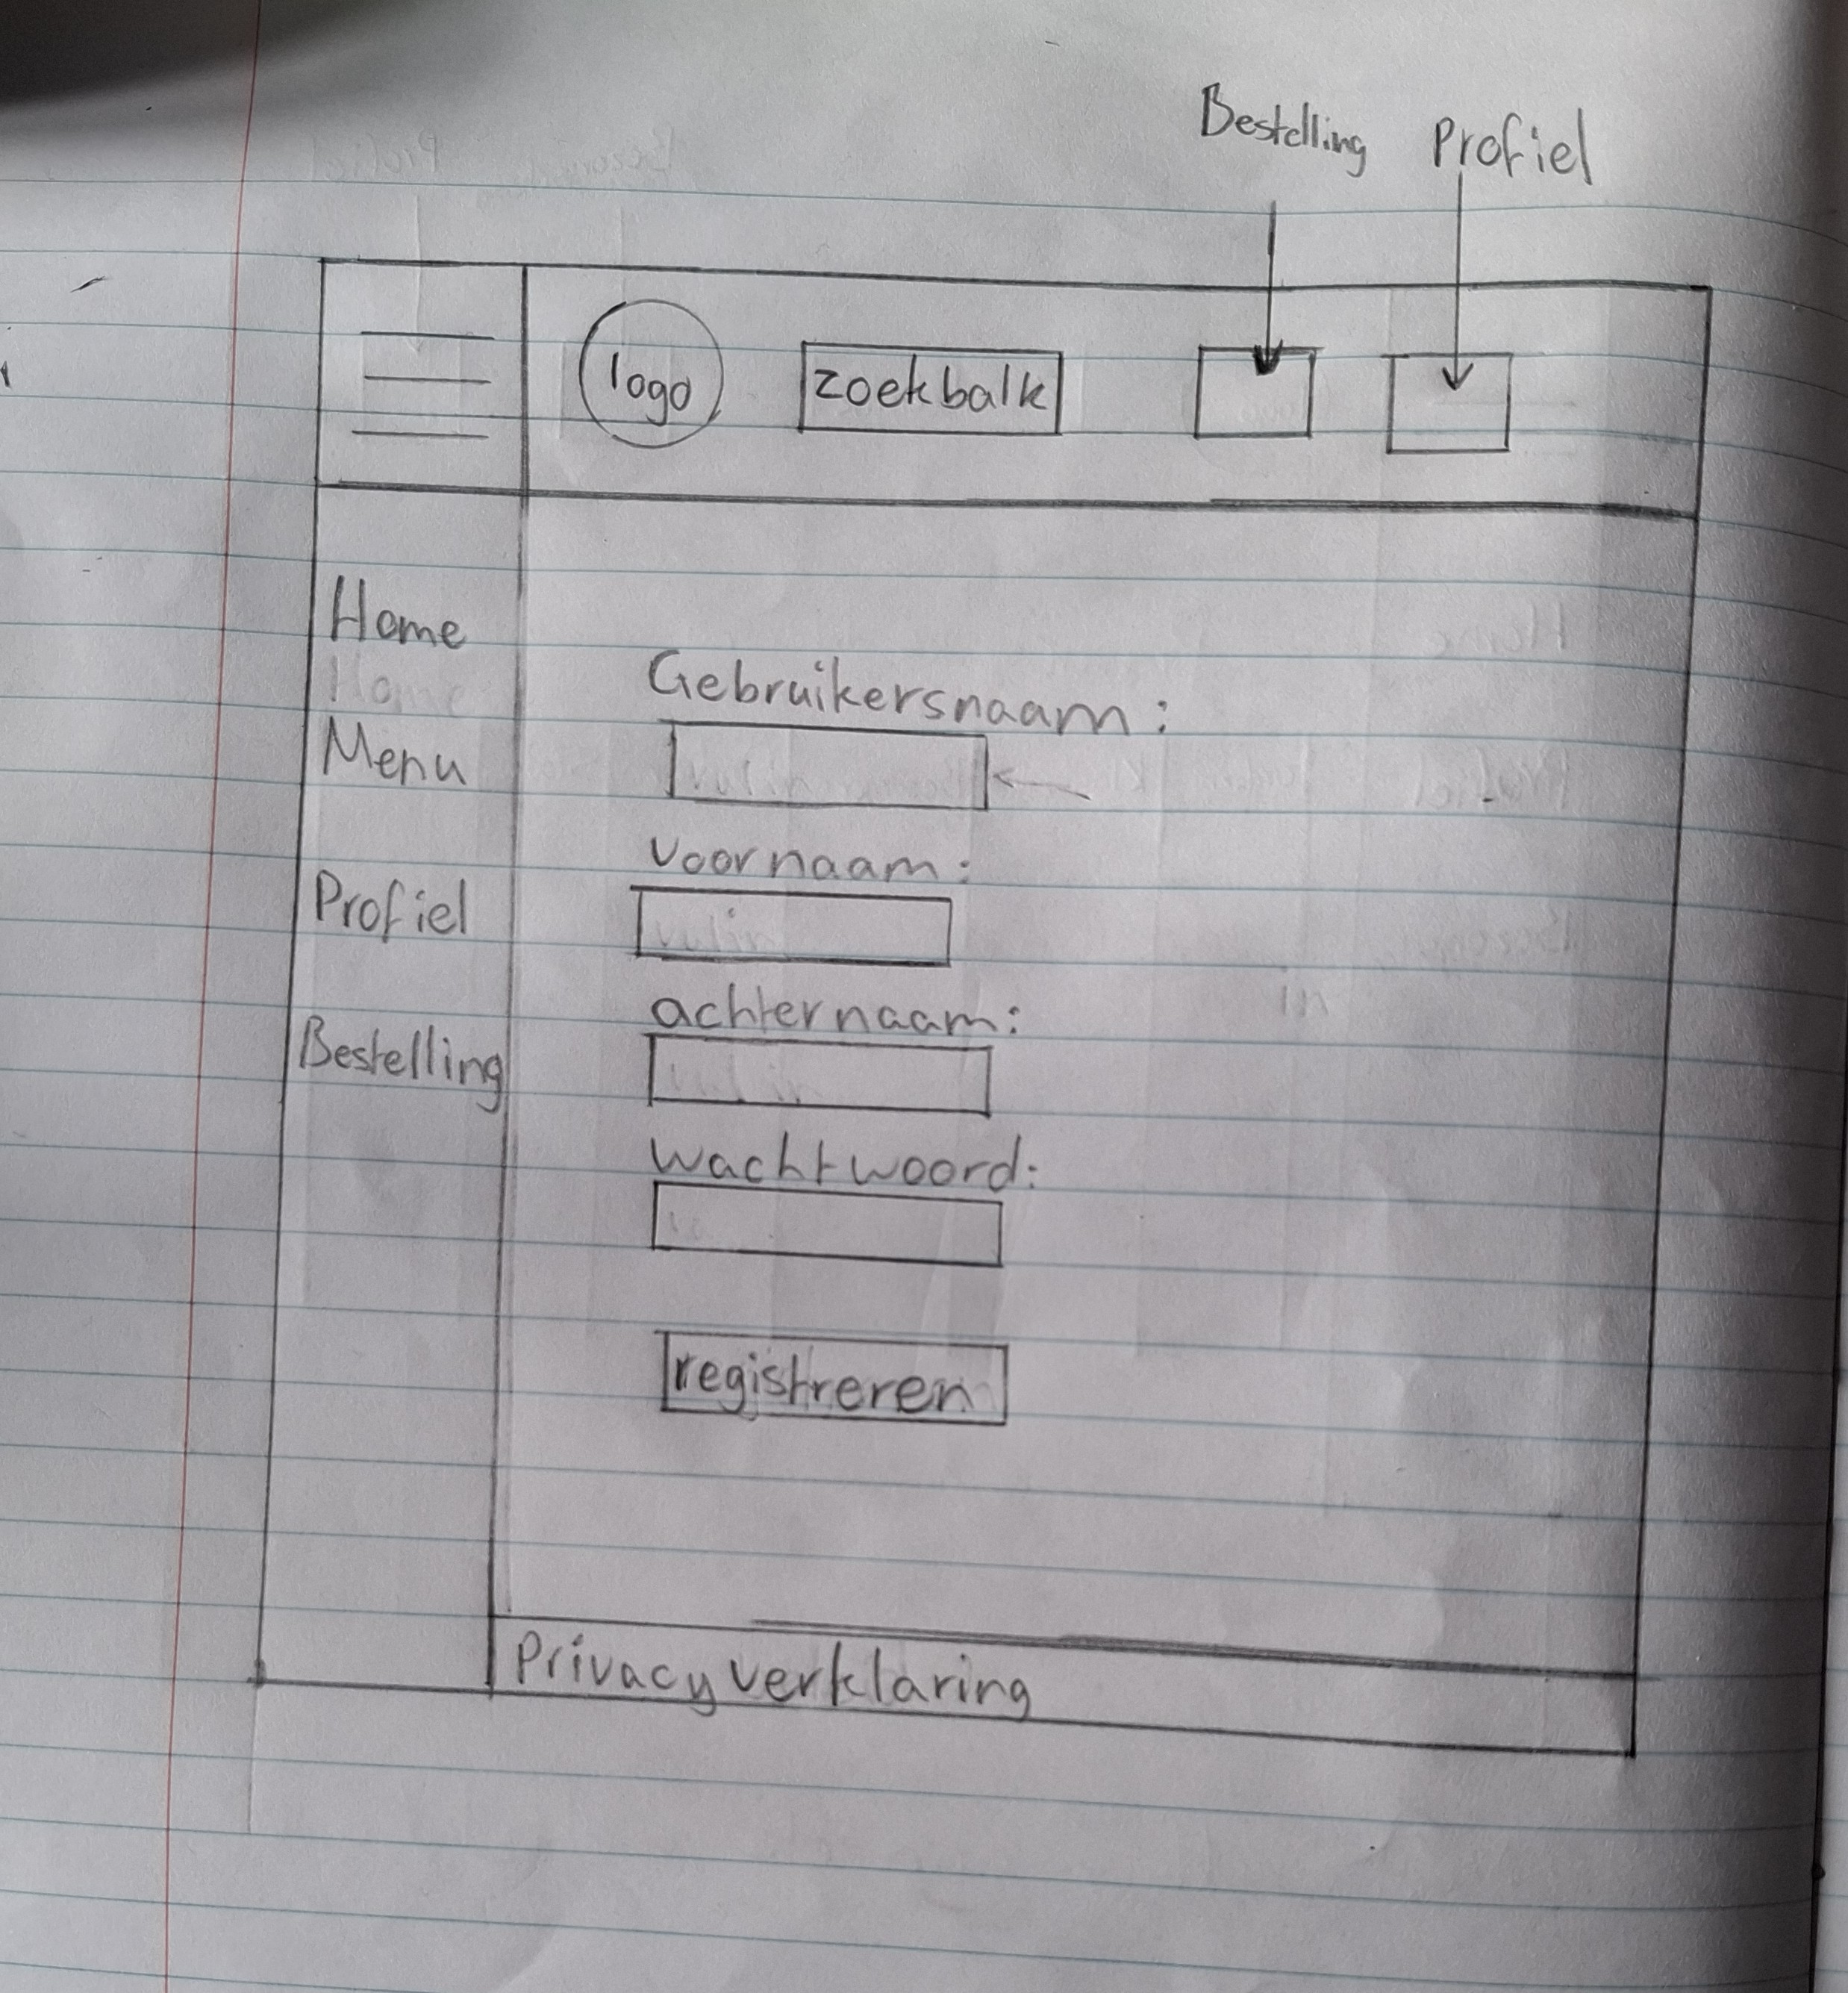 Bestelling Profiel
logo zoekbalk
Home
Home
Menu
Profiel
Bestelling
Gebruikersnaam:
voornaam:
achternaam:
wachtwoord:
registreren
Privacyverklaring